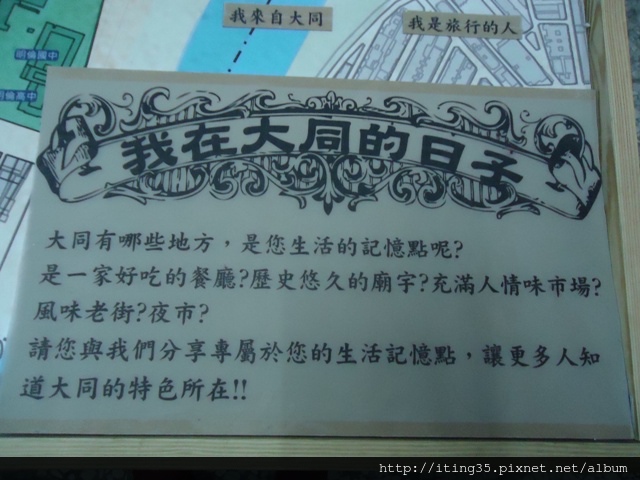 我來自大同
我是旅行的人
明倫國中
我在大同的日子
大同有哪些地方，是您生活的記憶點呢?
是一家好吃的餐廳?歷史悠久的廟宇?充滿人情味市場?
風味老街?夜市?
請您與我們分享專屬於您的生活記憶點，讓更多人知
道大同的特色所在!!
http://iting35.pixnet.net/album